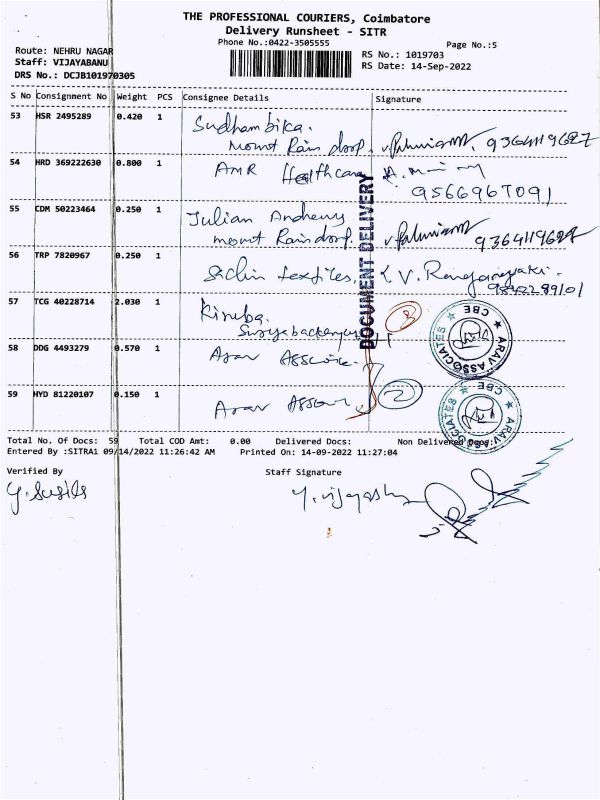 THE PROFESSIONAL COURIERS, Coimbatore
Delivery Runsheet - SITR
Phone No.:0422-3505555
Page No.:5
Route: NEHRU NAGAR
RS No.: 1019703
Staff: VIJAYABANU
RS Date: 14-Sep-2022
DRS No.: DCJB101970305
S No Consignment No Weight PCS Consignee Details Signature
53 HSR 2495289 0.420 1 Sudhambika.
Mount Rain drop. 9364119627
54 HRD 369222630 0.800 1 AMR Healthcare
9566967091
55 CDM 50223464 0.250 1 Julian Andrews
mount Raindrop. 9364119627
56 TRP 7820967 0.250 1 Sachin textiles, V. Ranganayaki.
57 TCG 40228714 2.030 1 Kiruba.
3
58 DDG 4493279 0.570 1 Arav
59 HYD 81220107 0.150 1 Arav
2
DOCUMENT DELIVERY
ARAV ASSOCIATES ★ CBE ★
ARAV ASSOCIATES ★ CBE ★
Total No. Of Docs: 59 Total COD Amt: 0.00 Delivered Docs: Non Delivered Docs:
Entered By :SITRA1 09/14/2022 11:26:42 AM Printed On: 14-09-2022 11:27:04
Verified By Staff Signature